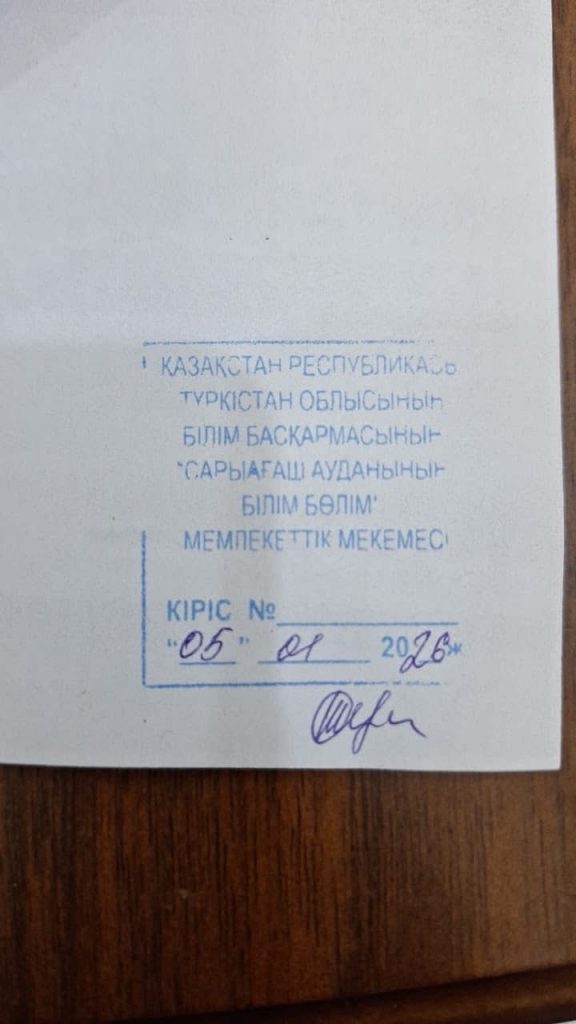 ҚАЗАҚСТАН РЕСПУБЛИКАСЫ
ТҮРКІСТАН ОБЛЫСЫНЫҢ
БІЛІМ БАСҚАРМАСЫНЫҢ
"САРЫАҒАШ АУДАНЫНЫҢ
БІЛІМ БӨЛІМ"
МЕМЛЕКЕТТІК МЕКЕМЕСІ
КІРІС №
"05" 01 2026ж